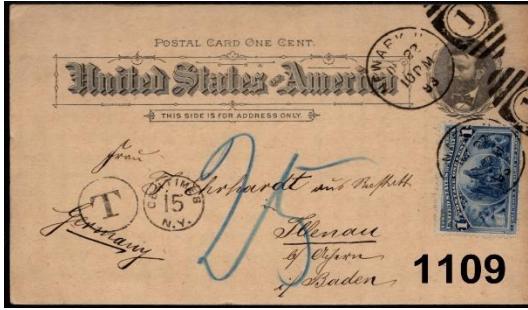 POSTAL CARD ONE CENT.
United States of America
THIS SIDE IS FOR ADDRESS ONLY.
NEWARK
22
10 PM
93
1
Frau
Ehrhardt aus Rastatt
T
CENTIMES
15
N.Y.
25
Germany
Illenau
b/ Achern
i/ Baden
1
1
1109